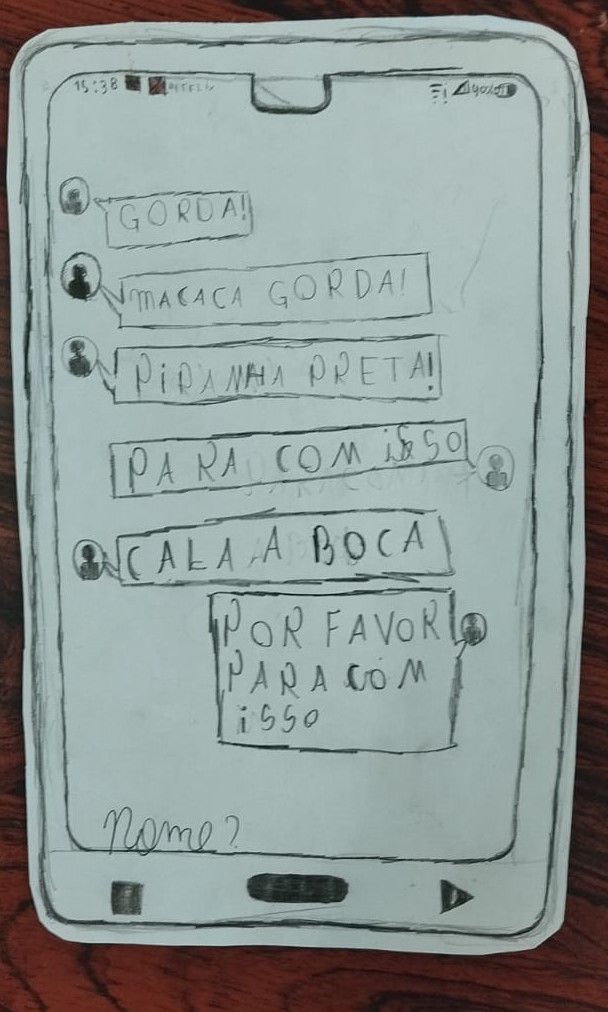 15:38
GORDA!
MACACA GORDA!
PIRANHA PRETA!
PARA COM iSSO
CALA A BOCA
POR FAVOR
PARA COM
iSSO
Nome?